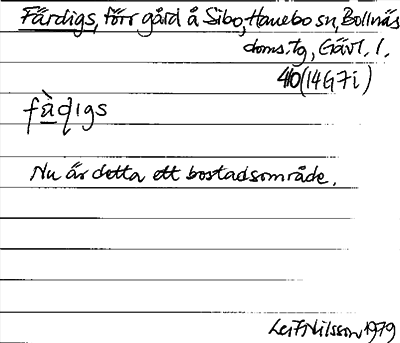 Färdigs, förr gård å Sibo, Hanebo sn, Bollnäs
doms. tg, Gävl. l.
46 (14G 7i)
fà̠ḍigs
Nu är detta ett bostadsområde.
Leif Nilsson 1979